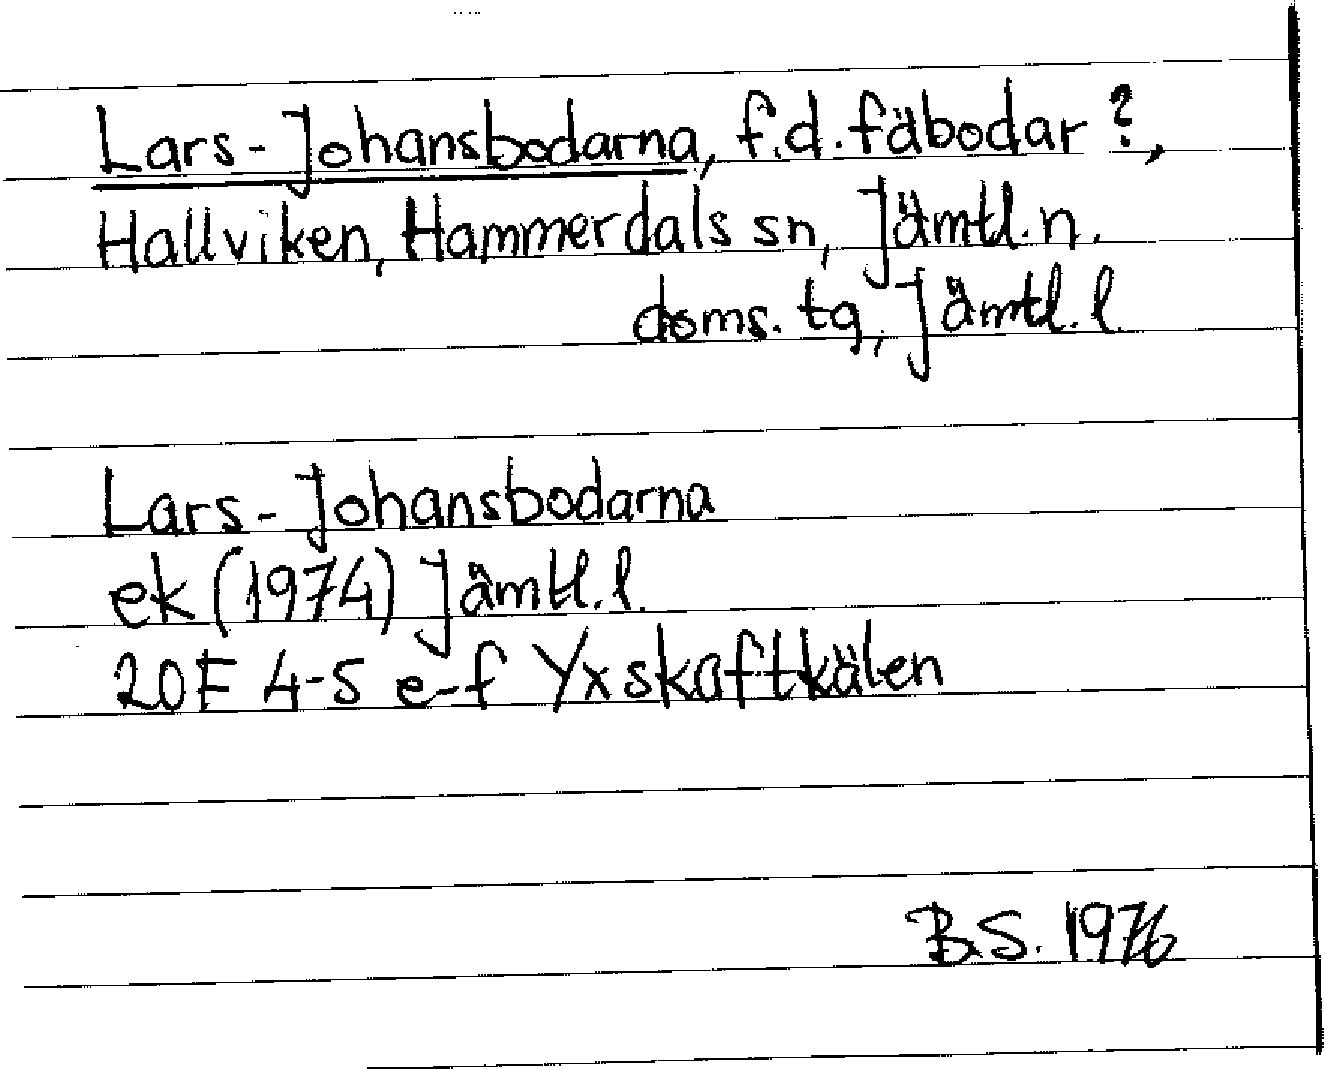 Lars-Johansbodarna, f.d. fäbodar?,
Hallviken, Hammerdals sn, Jämtl. n.
doms. tg, Jämtl. l.
Lars-Johansbodarna
ek (1974) Jämtl. l.
20F 4-5 e-f Yxskaftkälen
B.S. 1976